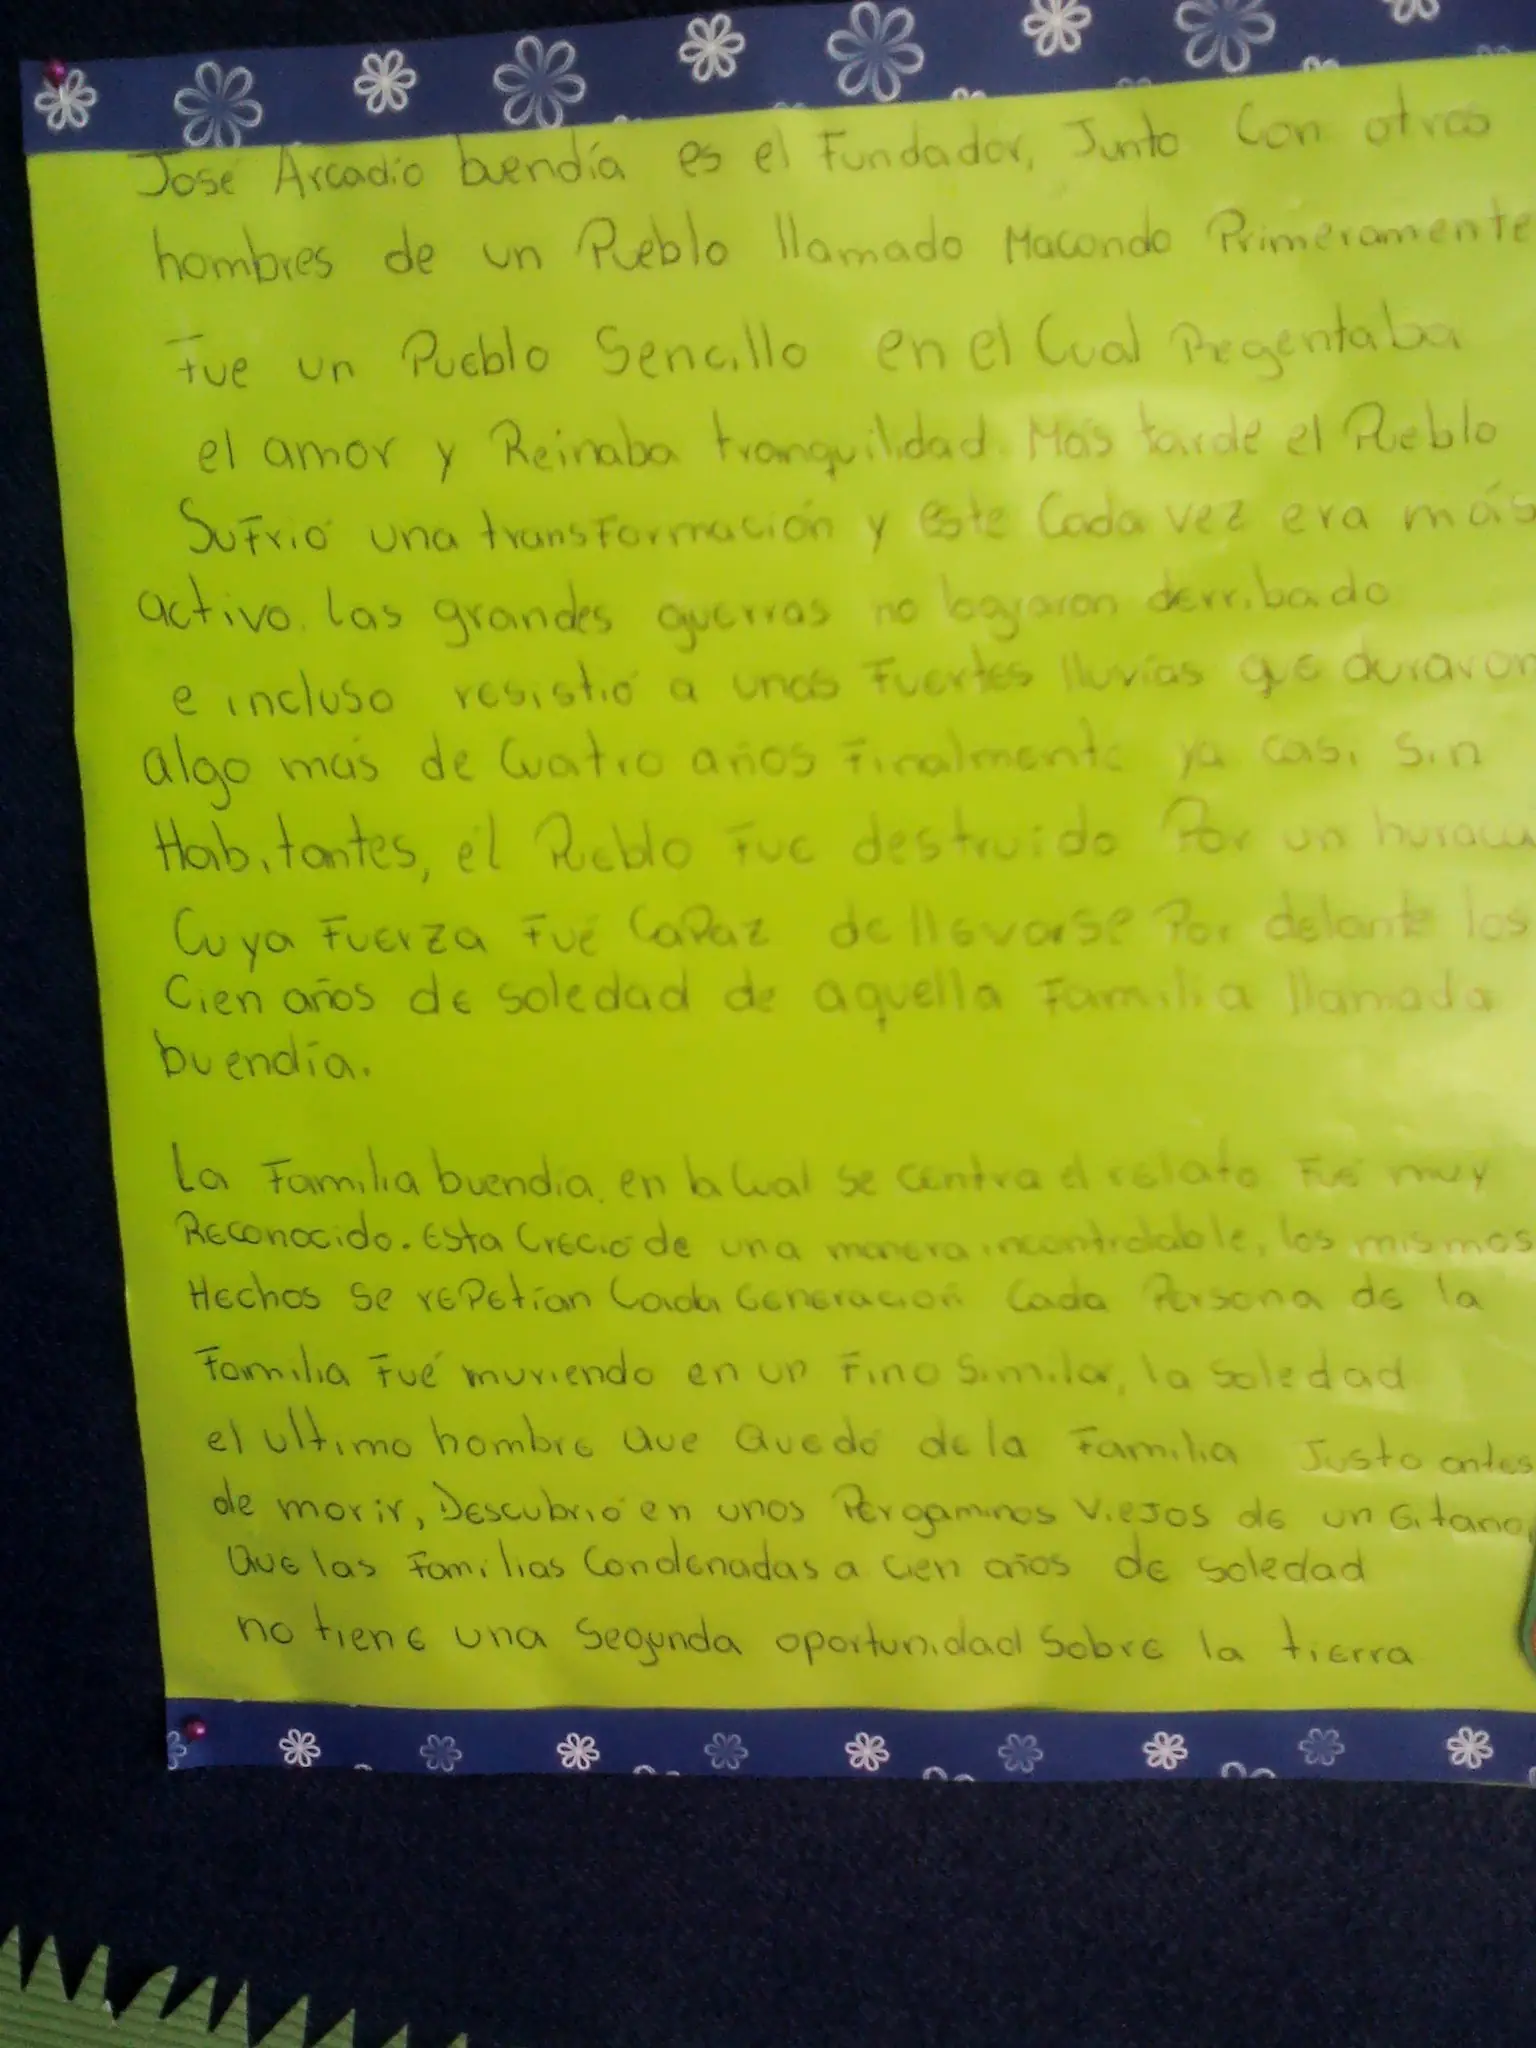 José Arcadio buendía es el Fundador, Junto Con otros
hombres de un Pueblo llamado Macondo Primeramente
Fue un Pueblo Sencillo en el Cual Regentaba
el amor y Reinaba tranquilidad. Más tarde el Pueblo
Sufrió una transFormación y este Cada vez era más
activo. las grandes guerras no lograron derribado
e incluso resistió a unas Fuertes lluvias que duraron
algo más de Cuatro años Finalmente ya casi sin
Habitantes, el Pueblo Fue destruido Por un huraca
Cuya Fuerza Fué CaPaz de llevarse Por delante los
Cien años de soledad de aquella Familia llamada
buendía.
La Familia buendia, en la Cual se centra el relato Fué muy
Reconocido. Esta Creció de una manera incontrolable, los mismos
Hechos se rePetían Cada Generación Cada Persona de la
Familia Fué muriendo en un Fino Similar, la soledad
el ultimo hombre Que Quedó de la Familia Justo antes
de morir, Descubrió en unos Pergaminos Viejos de un Gitano,
Que las Familias Condenadas a cien años de soledad
no tiene una Segunda oportunidad Sobre la tierra